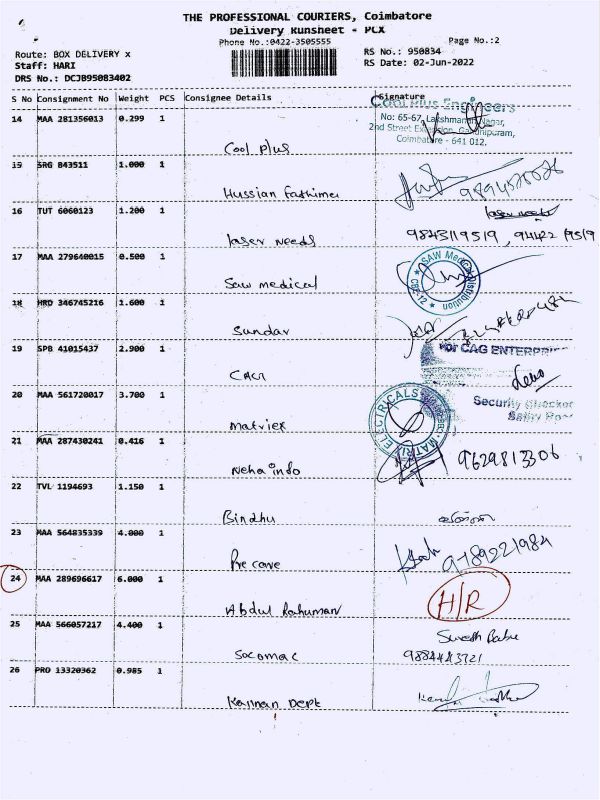 THE PROFESSIONAL COURIERS, Coimbatore
Delivery Runsheet - PCX
Phone No.:0422-3505555
Page No.:2
Route: BOX DELIVERY x
Staff: HARI
DRS No.: DCJB95083402
RS No.: 950834
RS Date: 02-Jun-2022
S No Consignment No Weight PCS Consignee Details Signature
14 MAA 281356013 0.299 1
Cool Plus
Cool Plus Engineers
No: 65-67, Lakshmanan Nagar,
2nd Street Extension, Gandhipuram,
Coimbatore - 641 012.
15 SRG 843511 1.000 1
Hussian Fathima
16 TUT 6060123 1.200 1
laser needs
laser needs
9843119519,
17 MAA 279640015 0.500 1
Saw medical
SAW Medical Distribution
CBE-12
18 HRD 346745216 1.600 1
Sundar
19 SPB 41015437 2.900 1
CAG
for CAG ENTERPRI
20 MAA 561720017 3.700 1
matriex
Security Checked
ELECTRICALS
21 MAA 287430241 0.416 1
Neha info
9629813306
22 TVL 1194693 1.150 1
Bindhu
23 MAA 564835339 4.000 1
Pre care
9789221984
24 MAA 289696617 6.000 1
Abdul Rahuman
H/R
25 MAA 566057217 4.400 1
Socomac
Suresh Babu
9884443721
26 PRO 13320362 0.985 1
Kannan Dept